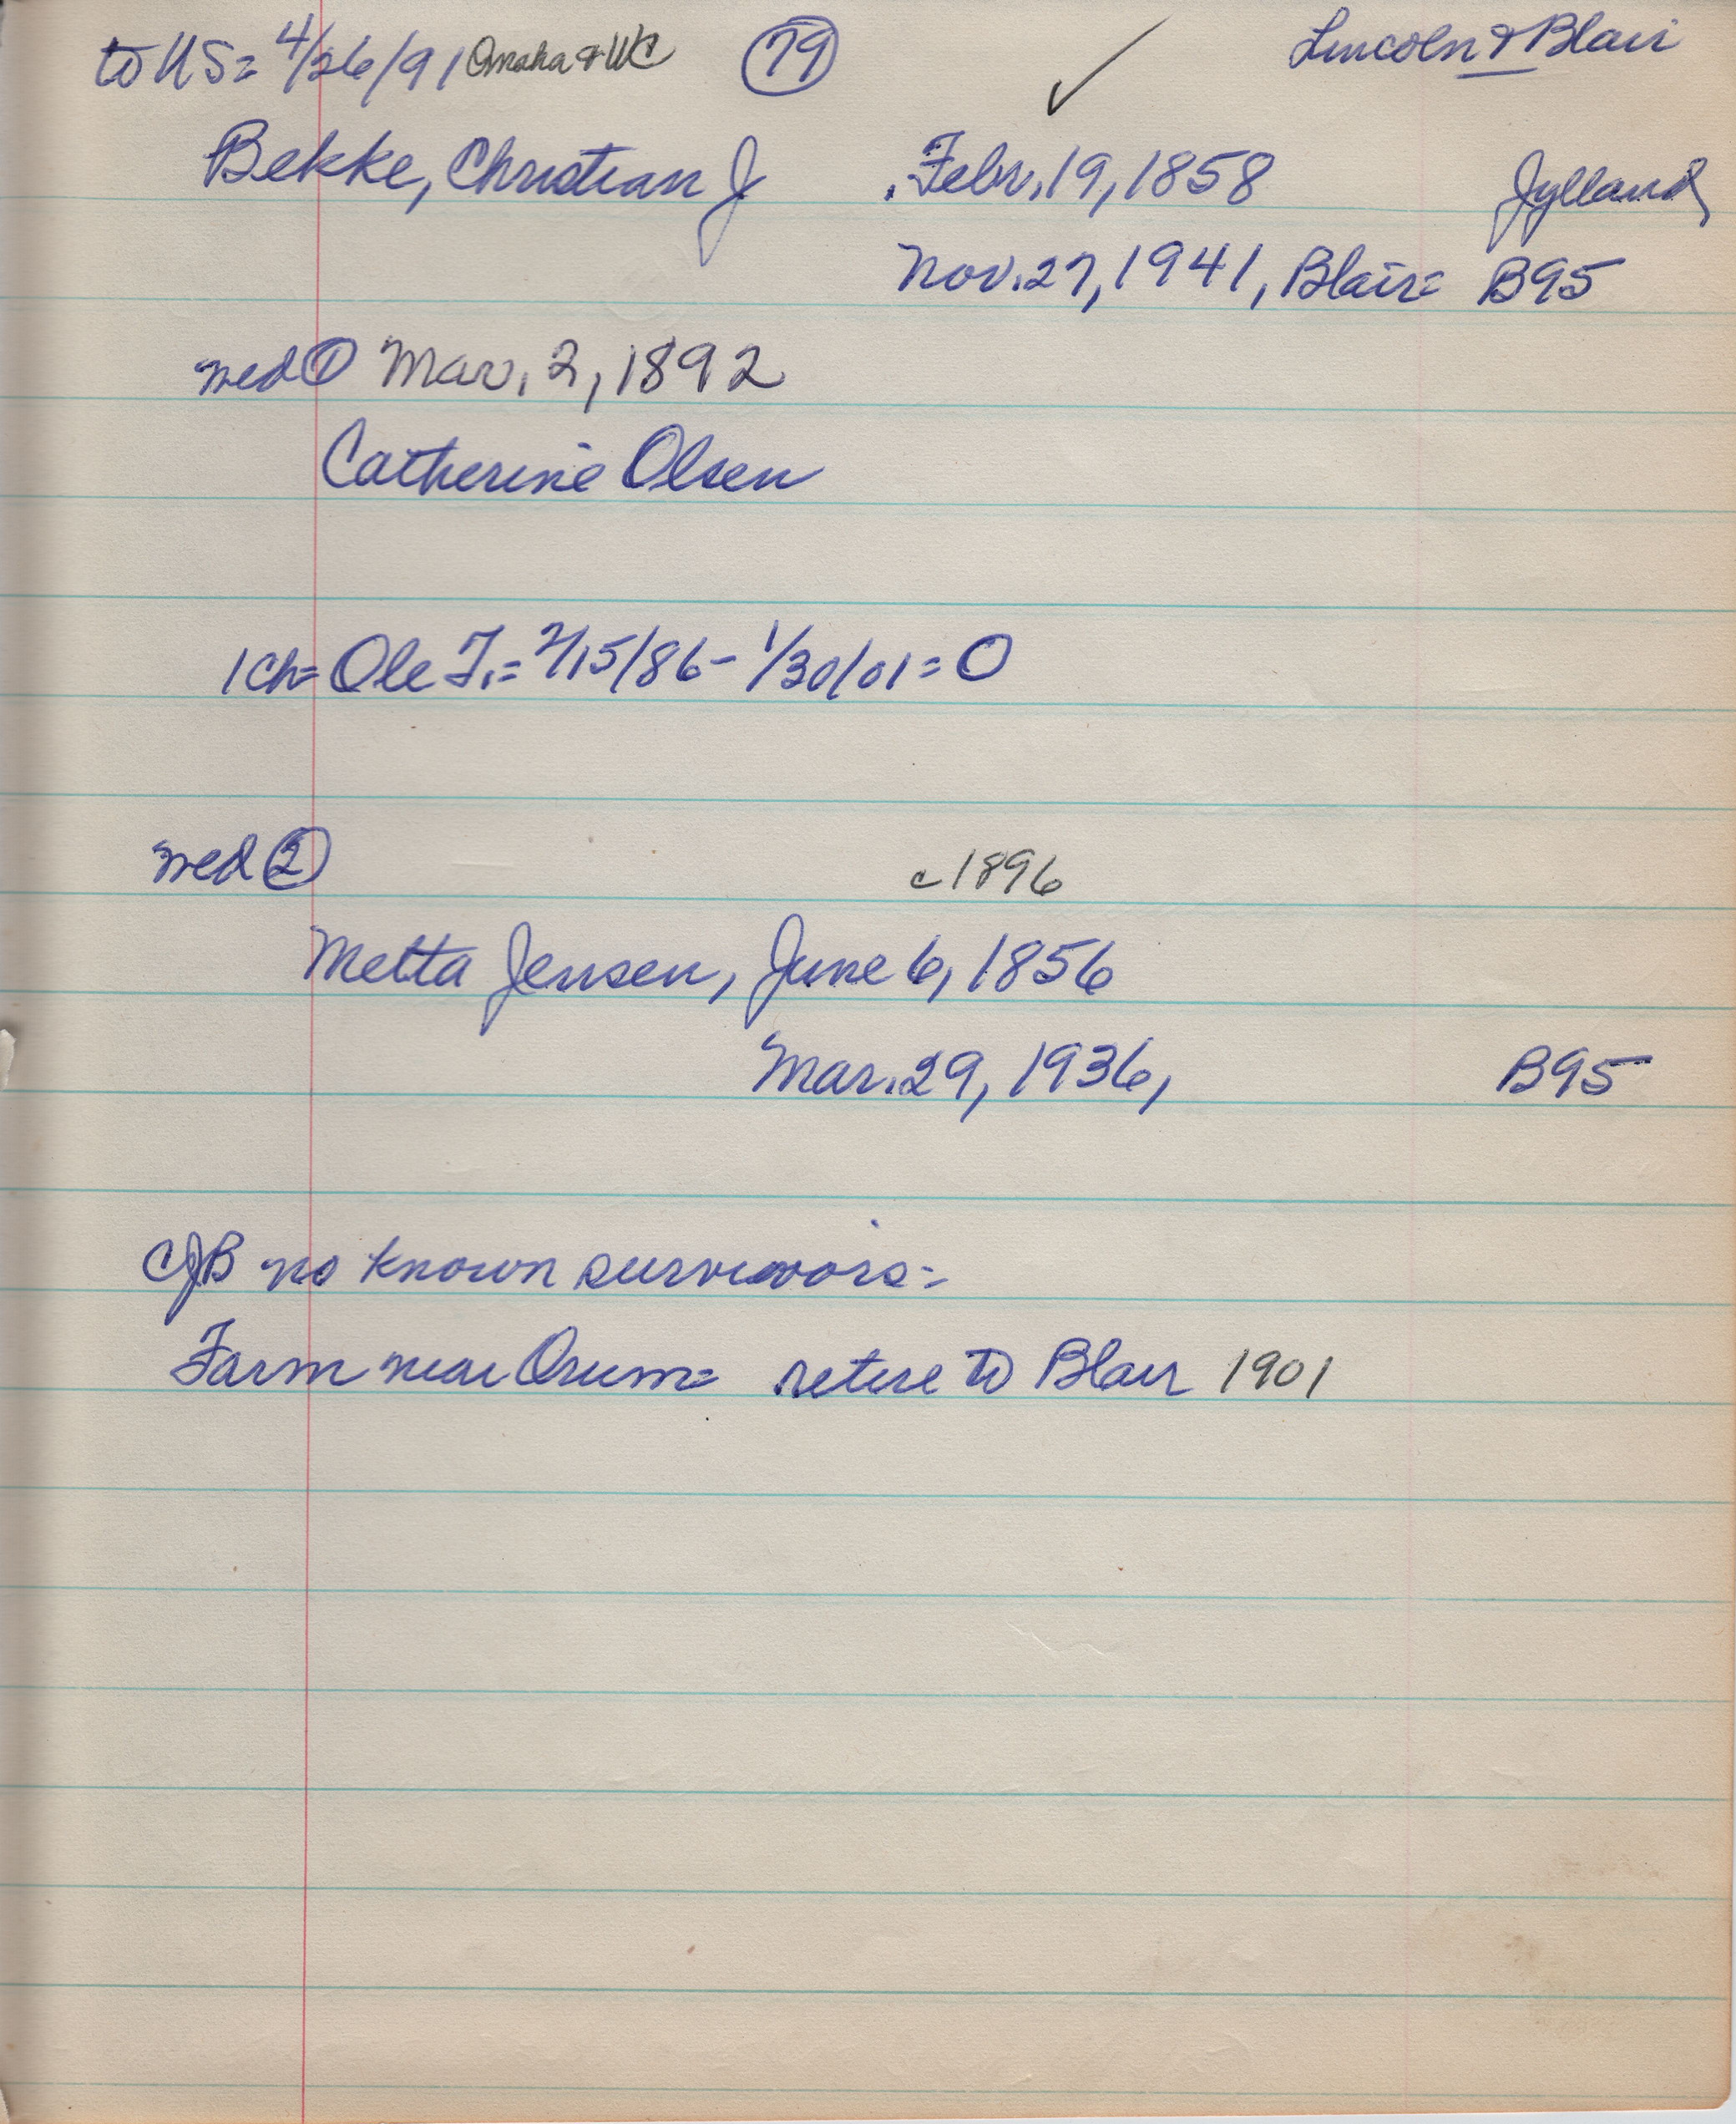 to US= 4/26/91 Omaha & WC (79) ✓ Lincoln & Blair
Bekke, Christian J . Febr. 19, 1858 Jylland
Nov. 27, 1941, Blair= B95
med ① Mar. 2, 1892
Catherine Olsen
1 ch= Ole T.= 2/15/86 - 1/30/01 = O
med ②
c 1896
Metta Jensen, June 6, 1856
Mar. 29, 1936, B95
CJB no known survivors=
Farm near Orum= retire to Blair 1901